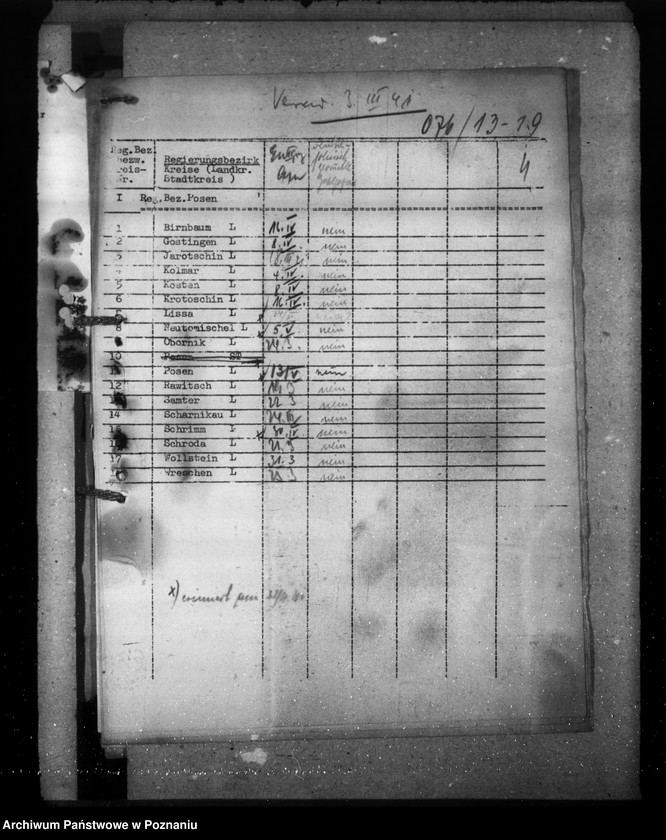 3. III 41
076/13-19
4
Reg.Bez. Regierungsbezirk
bezw. Kreise (Landkr.
Kreis- Stadtkreis )
Nr.
I Reg.Bez.Posen
1 Birnbaum L 16.IV nein
2 Gostingen L 8.IV. nein
3 Jarotschin L nein
4 Kolmar L 4.IV. nein
5 Kosten L 8.IV nein
6 Krotoschin L 16.IV. nein
Lissa L
8 Neutomischel L 5.V. nein
Obornik L 24.3. nein
10 Posen ST
11 Posen L 13/V nein
12 Rawitsch L nein
Samter L 22.3 nein
14 Scharnikau L nein
Schrimm L 30.IV. nein
Schroda L 21.3 nein
17 Wollstein L 31.3 nein
Wreschen L nein
x)
Archiwum Państwowe w Poznaniu